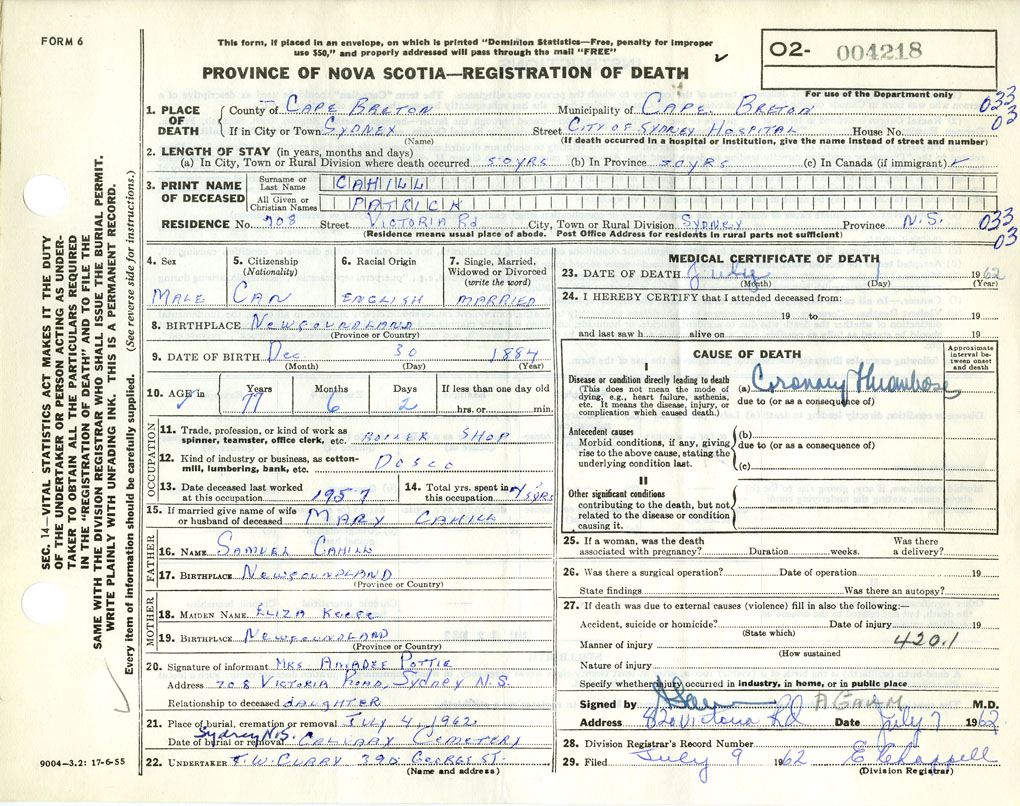 FORM 6
This form, if placed in an envelope, on which is printed "Dominion Statistics—Free, penalty for improper
use $50," and properly addressed will pass through the mail "FREE"
PROVINCE OF NOVA SCOTIA—REGISTRATION OF DEATH
O2- 004218
For use of the Department only
SEC. 14—VITAL STATISTICS ACT MAKES IT THE DUTY
OF THE UNDERTAKER OR PERSON ACTING AS UNDER-
TAKER TO OBTAIN ALL THE PARTICULARS REQUIRED
IN THE "REGISTRATION OF DEATH" AND TO FILE THE
SAME WITH THE DIVISION REGISTRAR WHO SHALL ISSUE THE BURIAL PERMIT.
WRITE PLAINLY WITH UNFADING INK. THIS IS A PERMANENT RECORD.
Every item of information should be carefully supplied. (See reverse side for instructions.)
1. PLACE OF DEATH County of CAPE BRETON Municipality of CAPE BRETON 033
If in City or Town SYDNEY Street CITY OF SYDNEY HOSPITAL House No. 03
(Name) (If death occurred in a hospital or institution, give the name instead of street and number)
2. LENGTH OF STAY (in years, months and days)
(a) In City, Town or Rural Division where death occurred 50 YRS (b) In Province 50 YRS (c) In Canada (if immigrant)
3. PRINT NAME OF DECEASED Surname or Last Name CAHILL
All Given or Christian Names PATRICK
RESIDENCE No. 708 Street VICTORIA Rd City, Town or Rural Division SYDNEY Province N.S. 033
03
(Residence means usual place of abode. Post Office Address for residents in rural parts not sufficient)
4. Sex 5. Citizenship (Nationality) 6. Racial Origin 7. Single, Married, Widowed or Divorced (write the word)
MALE CAN ENGLISH MARRIED
8. BIRTHPLACE NEWFOUNDLAND
(Province or Country)
9. DATE OF BIRTH Dec. 30 1884
(Month) (Day) (Year)
10. AGE in Years Months Days If less than one day old
77 6 2 hrs. or min.
OCCUPATION
11. Trade, profession, or kind of work as spinner, teamster, office clerk, etc. BOILER SHOP
12. Kind of industry or business, as cotton-mill, lumbering, bank, etc. DOSCO
13. Date deceased last worked at this occupation 1957 14. Total yrs. spent in this occupation YRS
15. If married give name of wife or husband of deceased MARY CAHILL
FATHER
16. NAME SAMUEL CAHILL
17. BIRTHPLACE NEWFOUNDLAND
(Province or Country)
MOTHER
18. MAIDEN NAME ELIZA KEEFE
19. BIRTHPLACE NEWFOUNDLAND
(Province or Country)
20. Signature of informant MRS AMADEE POTTIE
Address 708 VICTORIA ROAD, SYDNEY N.S.
Relationship to deceased DAUGHTER
21. Place of burial, cremation or removal JULY 4, 1962
Sydney N.S.
Date of burial or removal CALVARY CEMETERY
22. UNDERTAKER T.W. CURRY 390 GEORGE ST.
(Name and address)
9004—3.2: 17-6-55
MEDICAL CERTIFICATE OF DEATH
23. DATE OF DEATH July 1 1962
(Month) (Day) (Year)
24. I HEREBY CERTIFY that I attended deceased from:
19 to 19
and last saw h alive on 19
CAUSE OF DEATH
Approximate interval between onset and death
I
Disease or condition directly leading to death (a) Coronary Thrombosis
(This does not mean the mode of dying, e.g., heart failure, asthenia, etc. It means the disease, injury, or complication which caused death.)
due to (or as a consequence of)
Antecedent causes (b)
Morbid conditions, if any, giving rise to the above cause, stating the underlying condition last.
due to (or as a consequence of)
(c)
II
Other significant conditions
contributing to the death, but not related to the disease or condition causing it.
25. If a woman, was the death associated with pregnancy? Duration weeks. Was there a delivery?
26. Was there a surgical operation? Date of operation 19
State findings Was there an autopsy?
27. If death was due to external causes (violence) fill in also the following:—
Accident, suicide or homicide? Date of injury 19
(State which)
Manner of injury 420.1
(How sustained
Nature of injury
Specify whether injury occurred in industry, in home, or in public place
Signed by M.D.
Address 820 Victoria Rd Date July 7 1962
28. Division Registrar's Record Number
29. Filed July 9 1962 E Chappell
(Division Registrar)